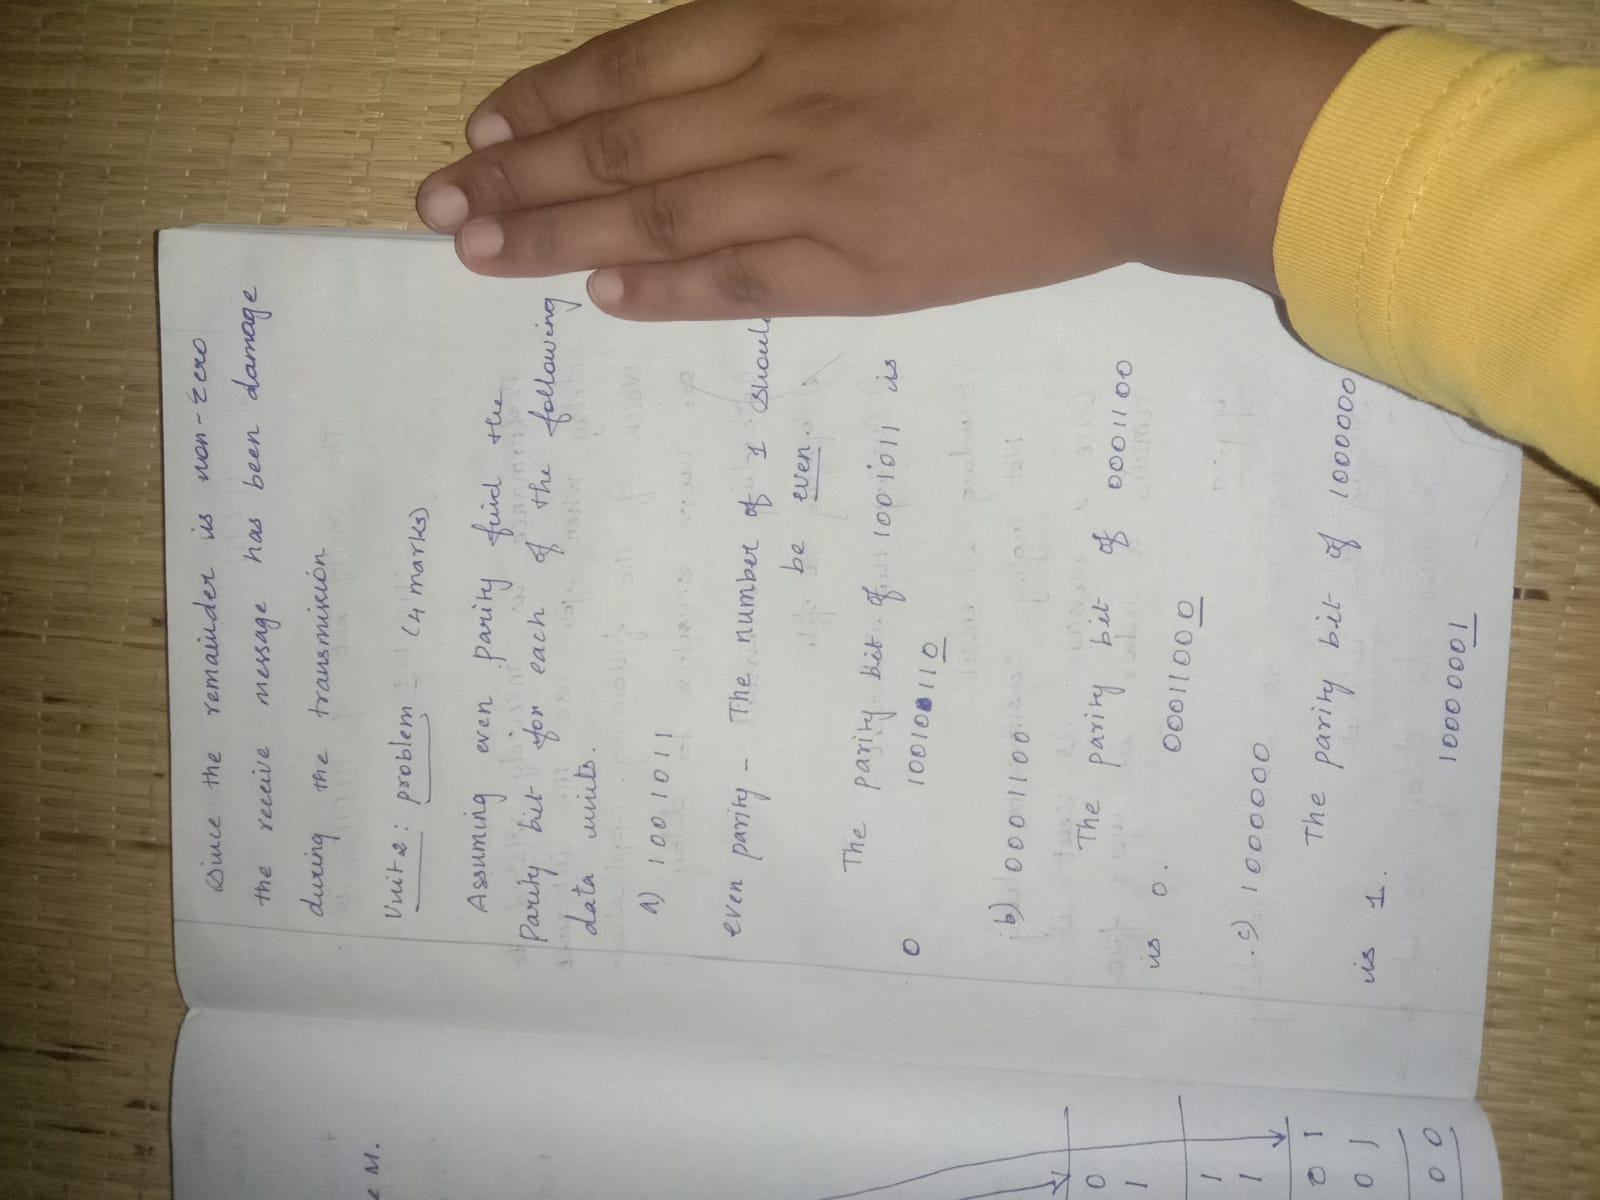 e M.
0
1
1
1
0 1
0 1
0 0
Since the remainder is non-zero
the receive message has been damage
during the transmission
Unit 2: problem (4 marks)
Assuming even parity find the
Parity bit for each of the following
data units.
a) 1001011
even parity - The number of 1 shoul
be even.
The parity bit of 1001011 is
0 10010110
b) 0001100
The parity bit of 0001100
is 0. 00011000
c) 1000000
The parity bit of 1000000
is 1.
10000001